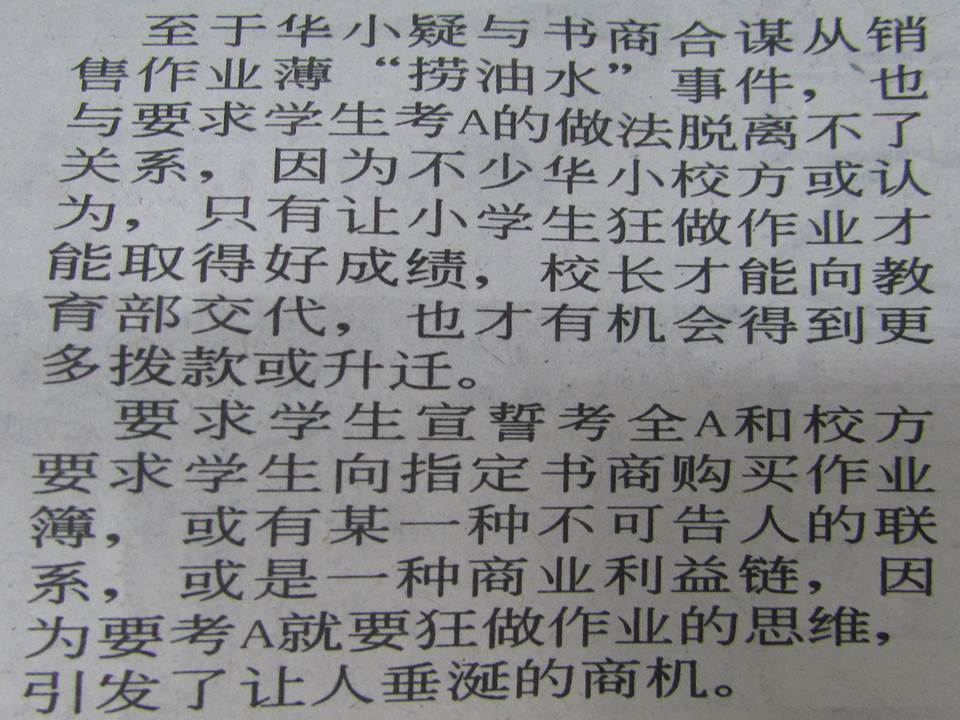 至于华小疑与书商合谋从销
售作业薄“捞油水”事件，也
与要求学生考A的做法脱离不了
关系，因为不少华小校方或认
为，只有让小学生狂做作业才
能取得好成绩，校长才能向教
育部交代，也才有机会得到更
多拨款或升迁。
要求学生宣誓考全A和校方
要求学生向指定书商购买作业
簿，或有某一种不可告人的联
系，或是一种商业利益链，因
为要考A就要狂做作业的思维，
引发了让人垂涎的商机。